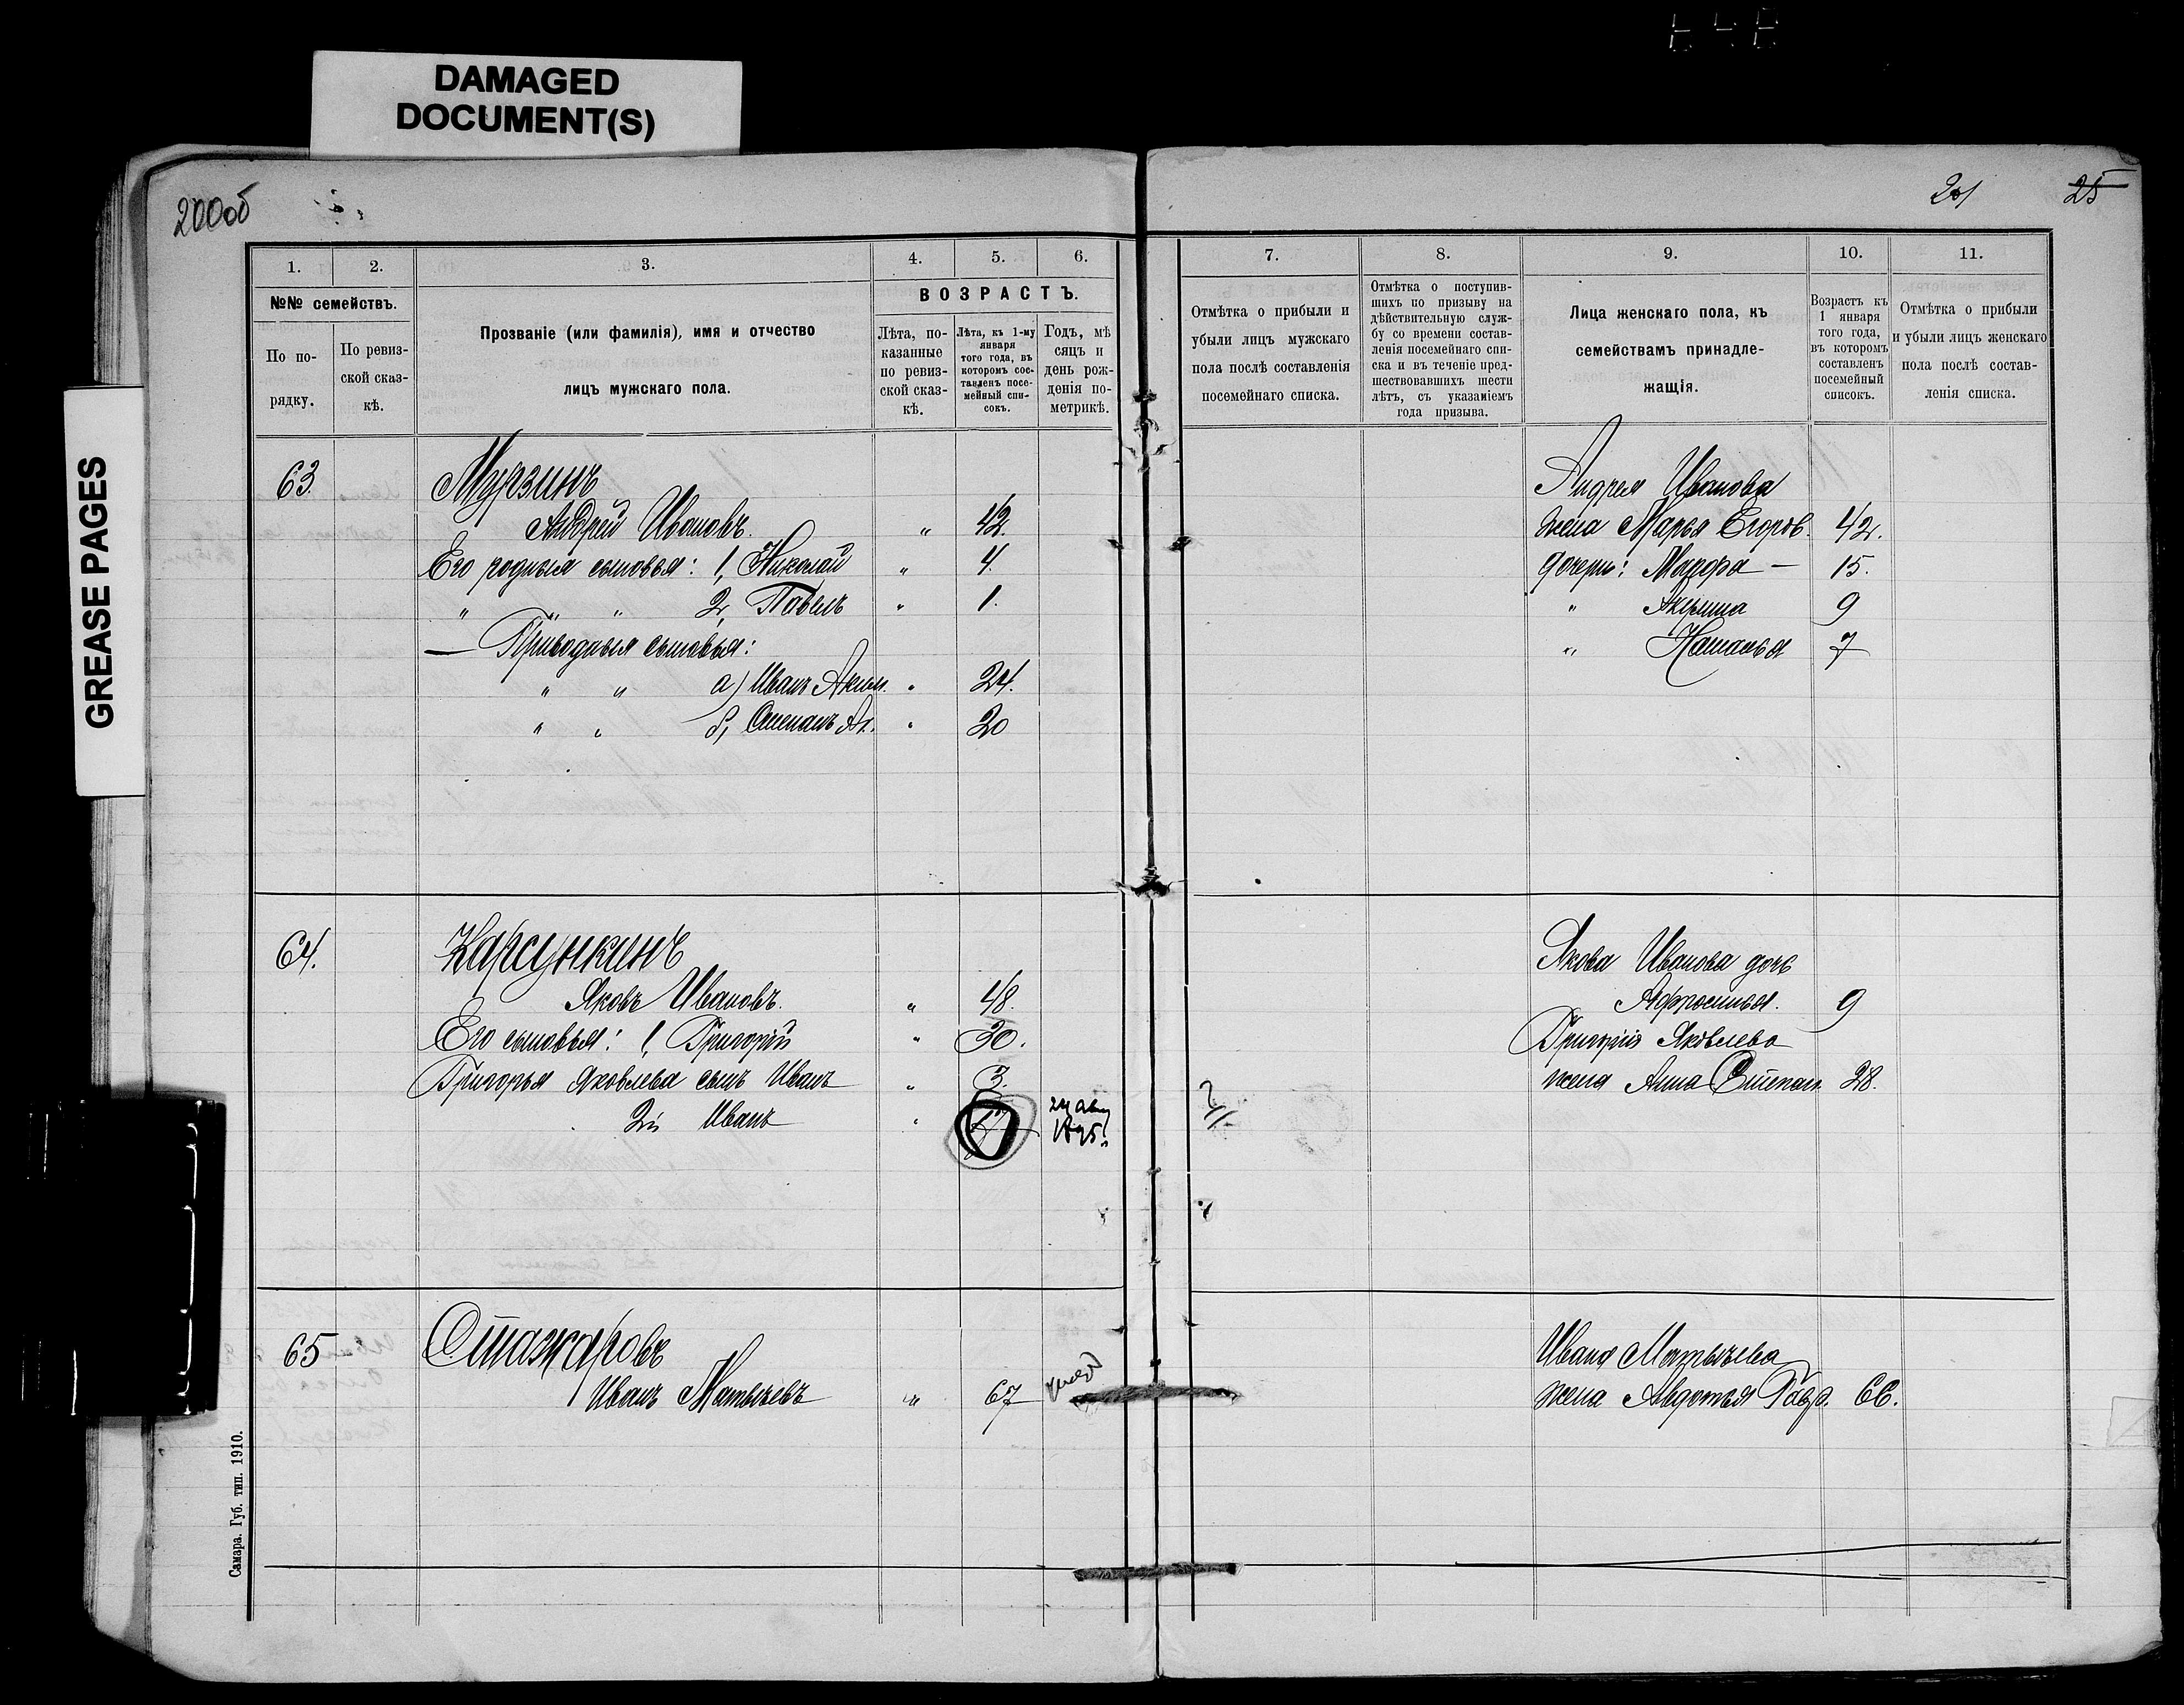 DAMAGED
DOCUMENT(S)
GREASE PAGES
200об
201
25
1.
2.
3.
4.
5.
6.
№№ семействъ.
По по-
рядку.
По ревиз-
ской сказ-
кѣ.
Прозваніе (или фамилія), имя и отчество
лицъ мужскаго пола.
ВОЗРАСТЪ.
Лѣта, по-
казанные
по ревиз-
ской сказ-
кѣ.
Лѣта, къ 1-му
января
того года, въ
которомъ сос-
тавленъ посе-
мейный спи-
сокъ.
Годъ, мѣ
сяцъ и
день рож-
денія по-
метрикѣ.
7.
8.
9.
10.
11.
Отмѣтка о прибыли и
убыли лицъ мужскаго
пола послѣ составленія
посемейнаго списка.
Отмѣтка о поступив-
шихъ по призыву на
дѣйствительную служ-
бу со времени состав-
ленія посемейнаго спи-
ска и въ теченіе пред-
шествовавшихъ шести
лѣтъ, съ указаніемъ
года призыва.
Лица женскаго пола, къ
семействамъ принадле-
жащія.
Возрастъ къ
1 января
того года,
въ которомъ
составленъ
посемейный
списокъ.
Отмѣтка о прибыли
и убыли лицъ женскаго
пола послѣ состав-
ленія списка.
63.
Мурзинъ
Андрей Ивановъ. „ 42.
Его родныя сыновья: 1, Николай „ 4.
„ „ „ 2, Павелъ „ 1.
— Приводныя сыновья:
„ „ а) Иванъ Аким. „ 24.
„ „ б, Степанъ Ак. „ 20
Андрея Иванова
жена Марья Егоров. 42.
дочери: Марфа — 15.
„ Акулина 9
„ Наталья 7
64.
Карсункинъ
Яковъ Ивановъ. „ 48.
Его сыновья: 1, Григорій „ 30.
Григорья Яковлева сынъ Иванъ „ 3.
2й Иванъ „
Якова Иванова дочь
Афросинья. 9
Григорія Яковлева
жена Анна Степан. 28.
65
Стажаровъ
Иванъ Матвѣевъ „ 67
Ивана Матвѣева
жена Авдотья Гавр. 66.
Самара. Губ. тип. 1910.